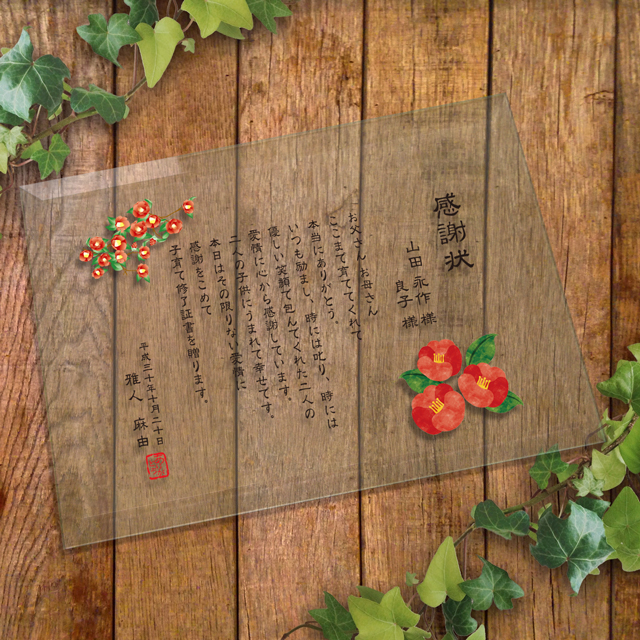 感謝状
山田 永作 様
良子 様
お父さん お母さん
ここまで育ててくれて
本当にありがとう。
いつも励まし、時には叱り、時には
優しい笑顔で包んでくれた二人の
愛情に心から感謝しています。
二人の子供にうまれて幸せです。
本日はその限りない愛情に
感謝をこめて
子育て修了証書を贈ります。
平成三十年十月二十日
雅人 麻由